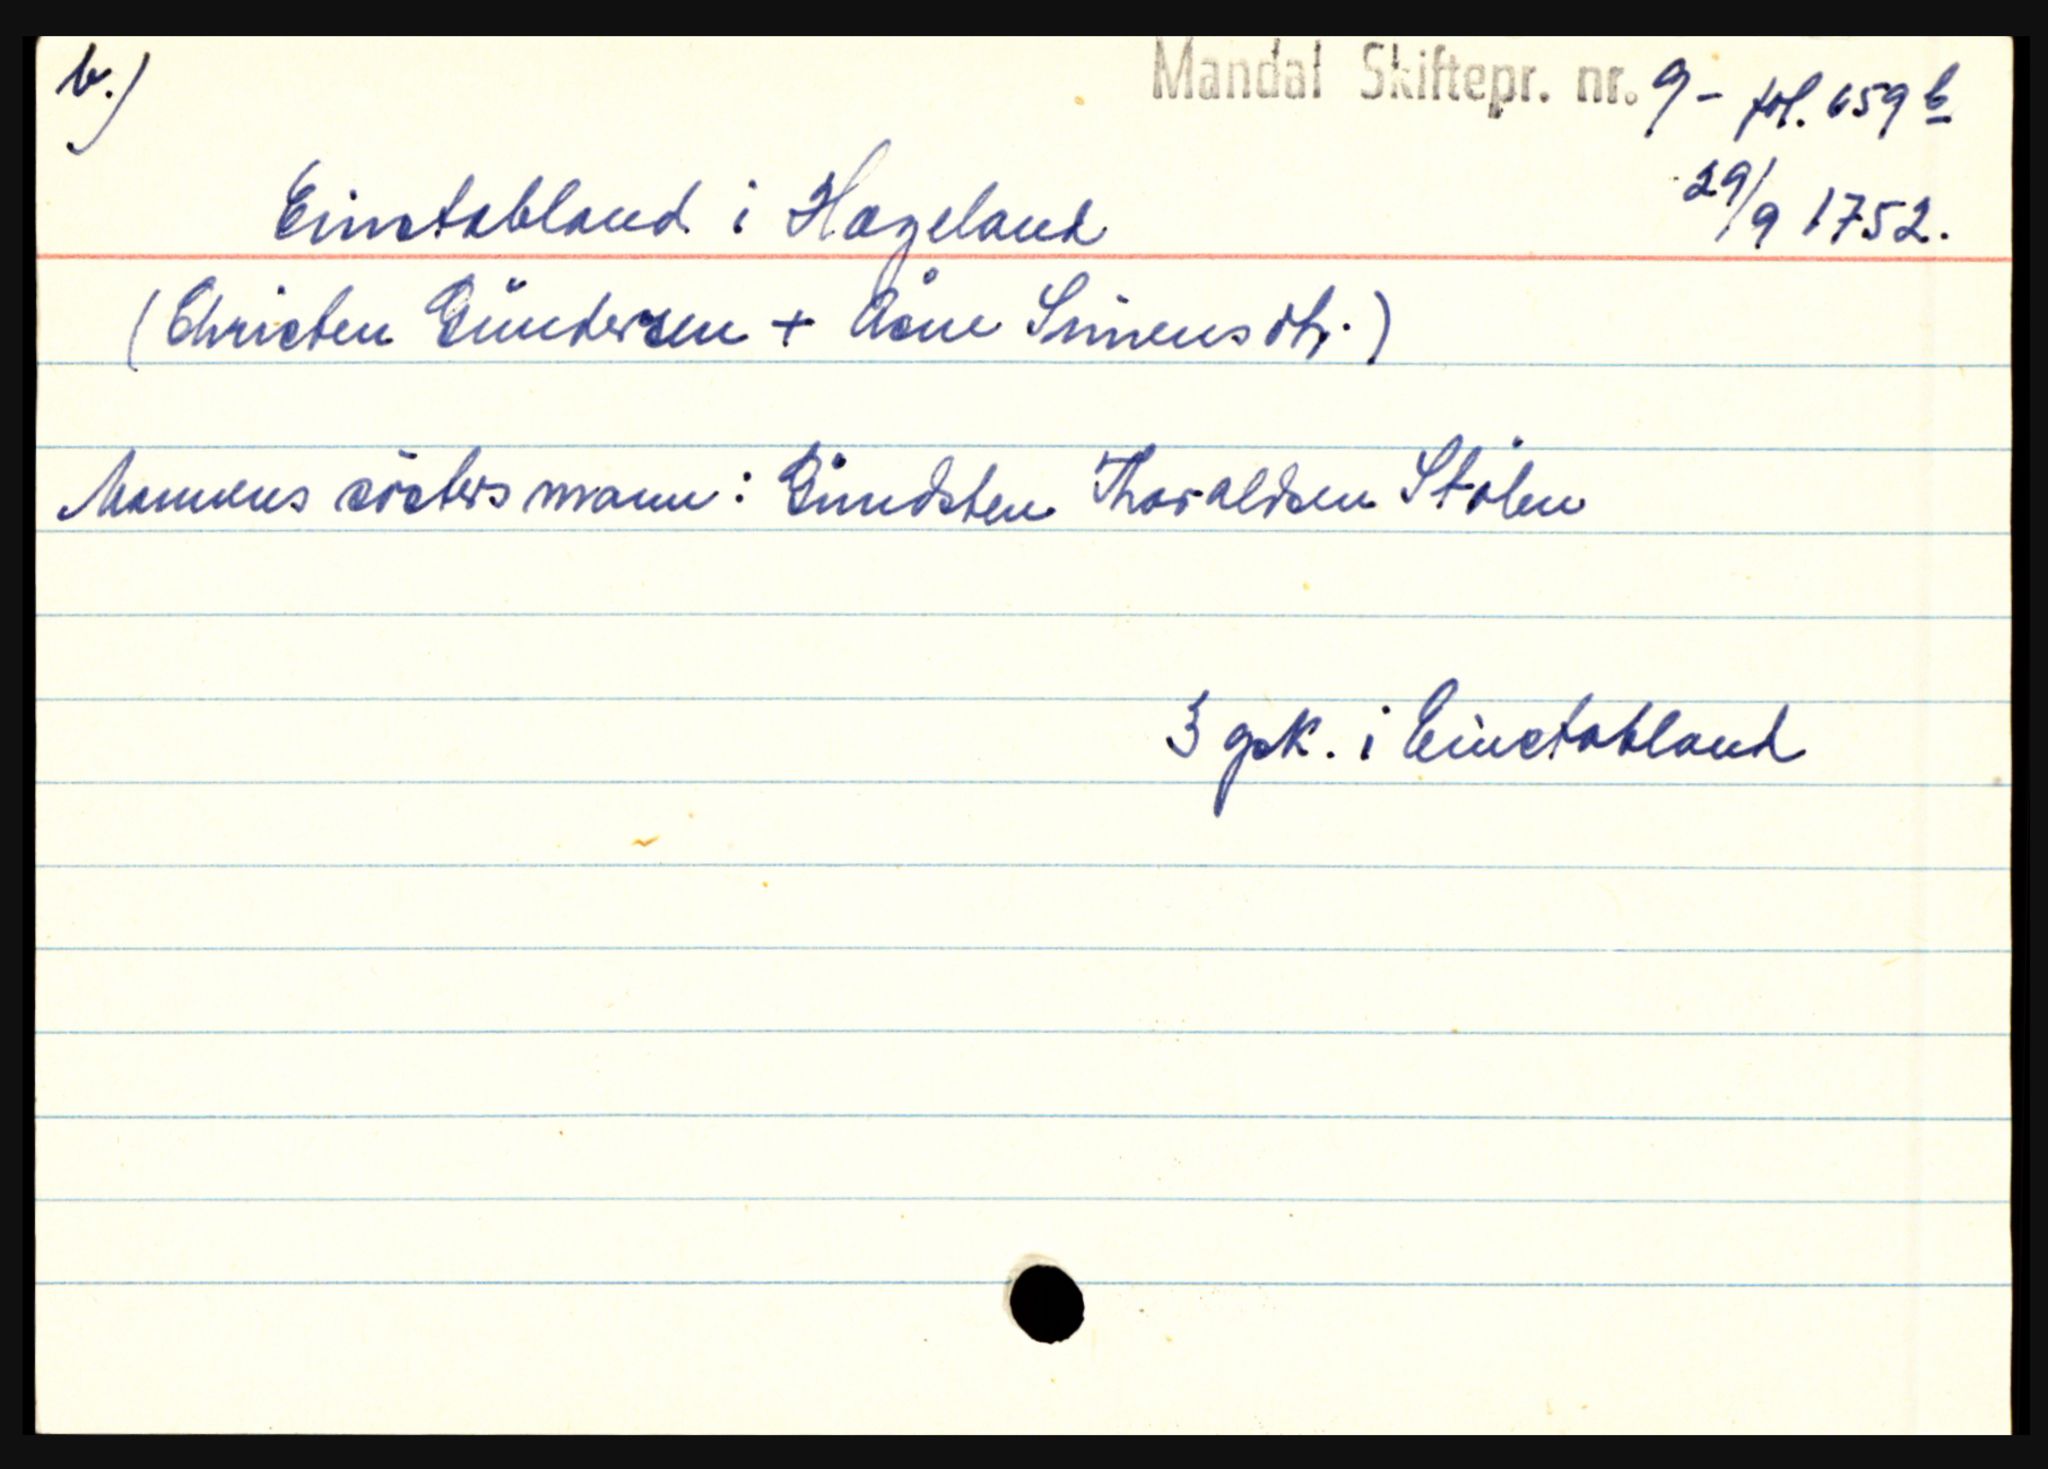 b.)
Mandal Skiftepr. nr. 9 - fol. 659 b
29/9 1752.
Einstabland i Hægeland
(Christen Gundersen + Åsne Simensdtr.)
Mannens søsters mann: Gundsten Tharaldsen Stølen
3 gsk. i Einstabland